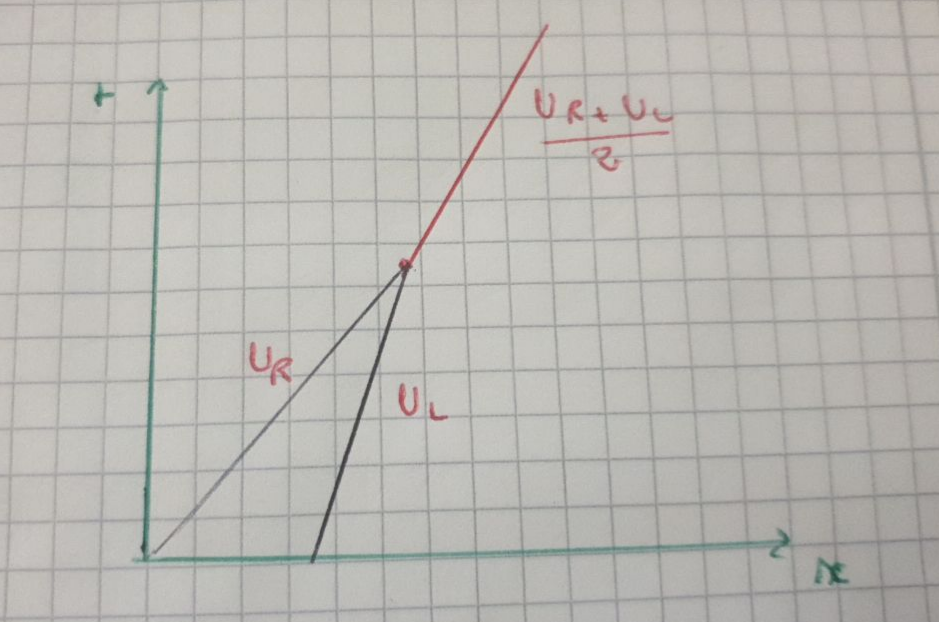 t
U_R + U_L
2
U_R
U_L
x